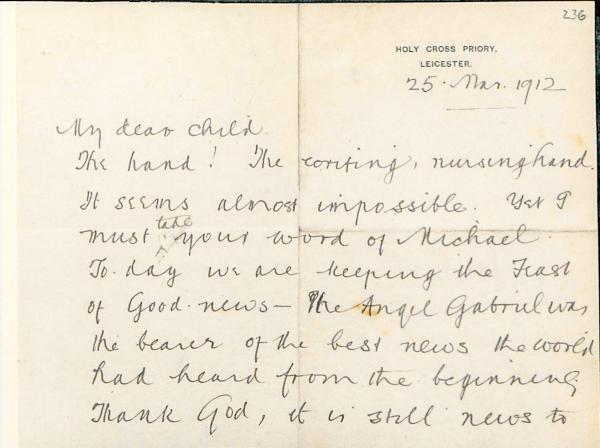 236
HOLY CROSS PRIORY,
LEICESTER.
25. Mar. 1912
My dear Child
The hand! The writing, nursing hand.
It seems almost impossible. Yet I
must take your word of Michael.
To-day we are keeping the Feast
of Good-news – The Angel Gabriel was
the bearer of the best news the world
had heard from the beginning.
Thank God, it is still news to